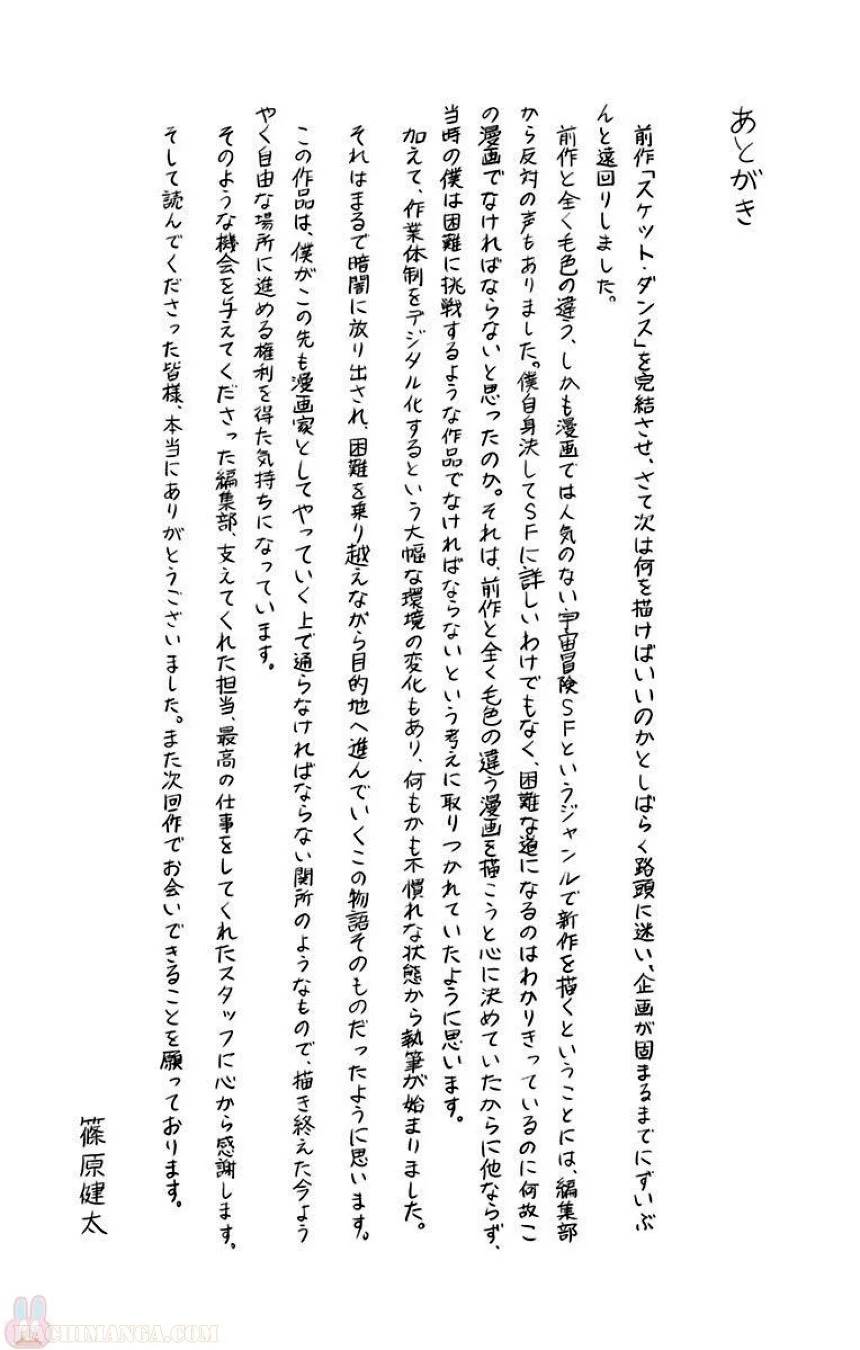 あとがき
前作「スケット・ダンス」を完結させ、さて次は何を描けばいいのかとしばらく路頭に迷い、企画が固まるまでにずいぶ
んと遠回りしました。
前作と全く毛色の違う、しかも漫画では人気のない宇宙冒険SFというジャンルで新作を描くということには、編集部
から反対の声もありました。僕自身決してSFに詳しいわけでもなく、困難な道になるのはわかりきっているのに何故こ
の漫画でなければならないと思ったのか。それは、前作と全く毛色の違う漫画を描こうと心に決めていたからに他ならず、
当時の僕は困難に挑戦するような作品でなければならないという考えに取りつかれていたように思います。
加えて、作業体制をデジタル化するという大幅な環境の変化もあり、何もかも不慣れな状態から執筆が始まりました。
それはまるで暗闇に放り出され、困難を乗り越えながら目的地へ進んでいくこの物語そのものだったように思います。
この作品は、僕がこの先も漫画家としてやっていく上で通らなければならない関所のようなもので、描き終えた今よう
やく自由な場所に進める権利を得た気持ちになっています。
そのような機会を与えてくださった編集部、支えてくれた担当、最高の仕事をしてくれたスタッフに心から感謝します。
そして読んでくださった皆様、本当にありがとうございました。また次回作でお会いできることを願っております。
篠原健太
HACHIMANGA.COM